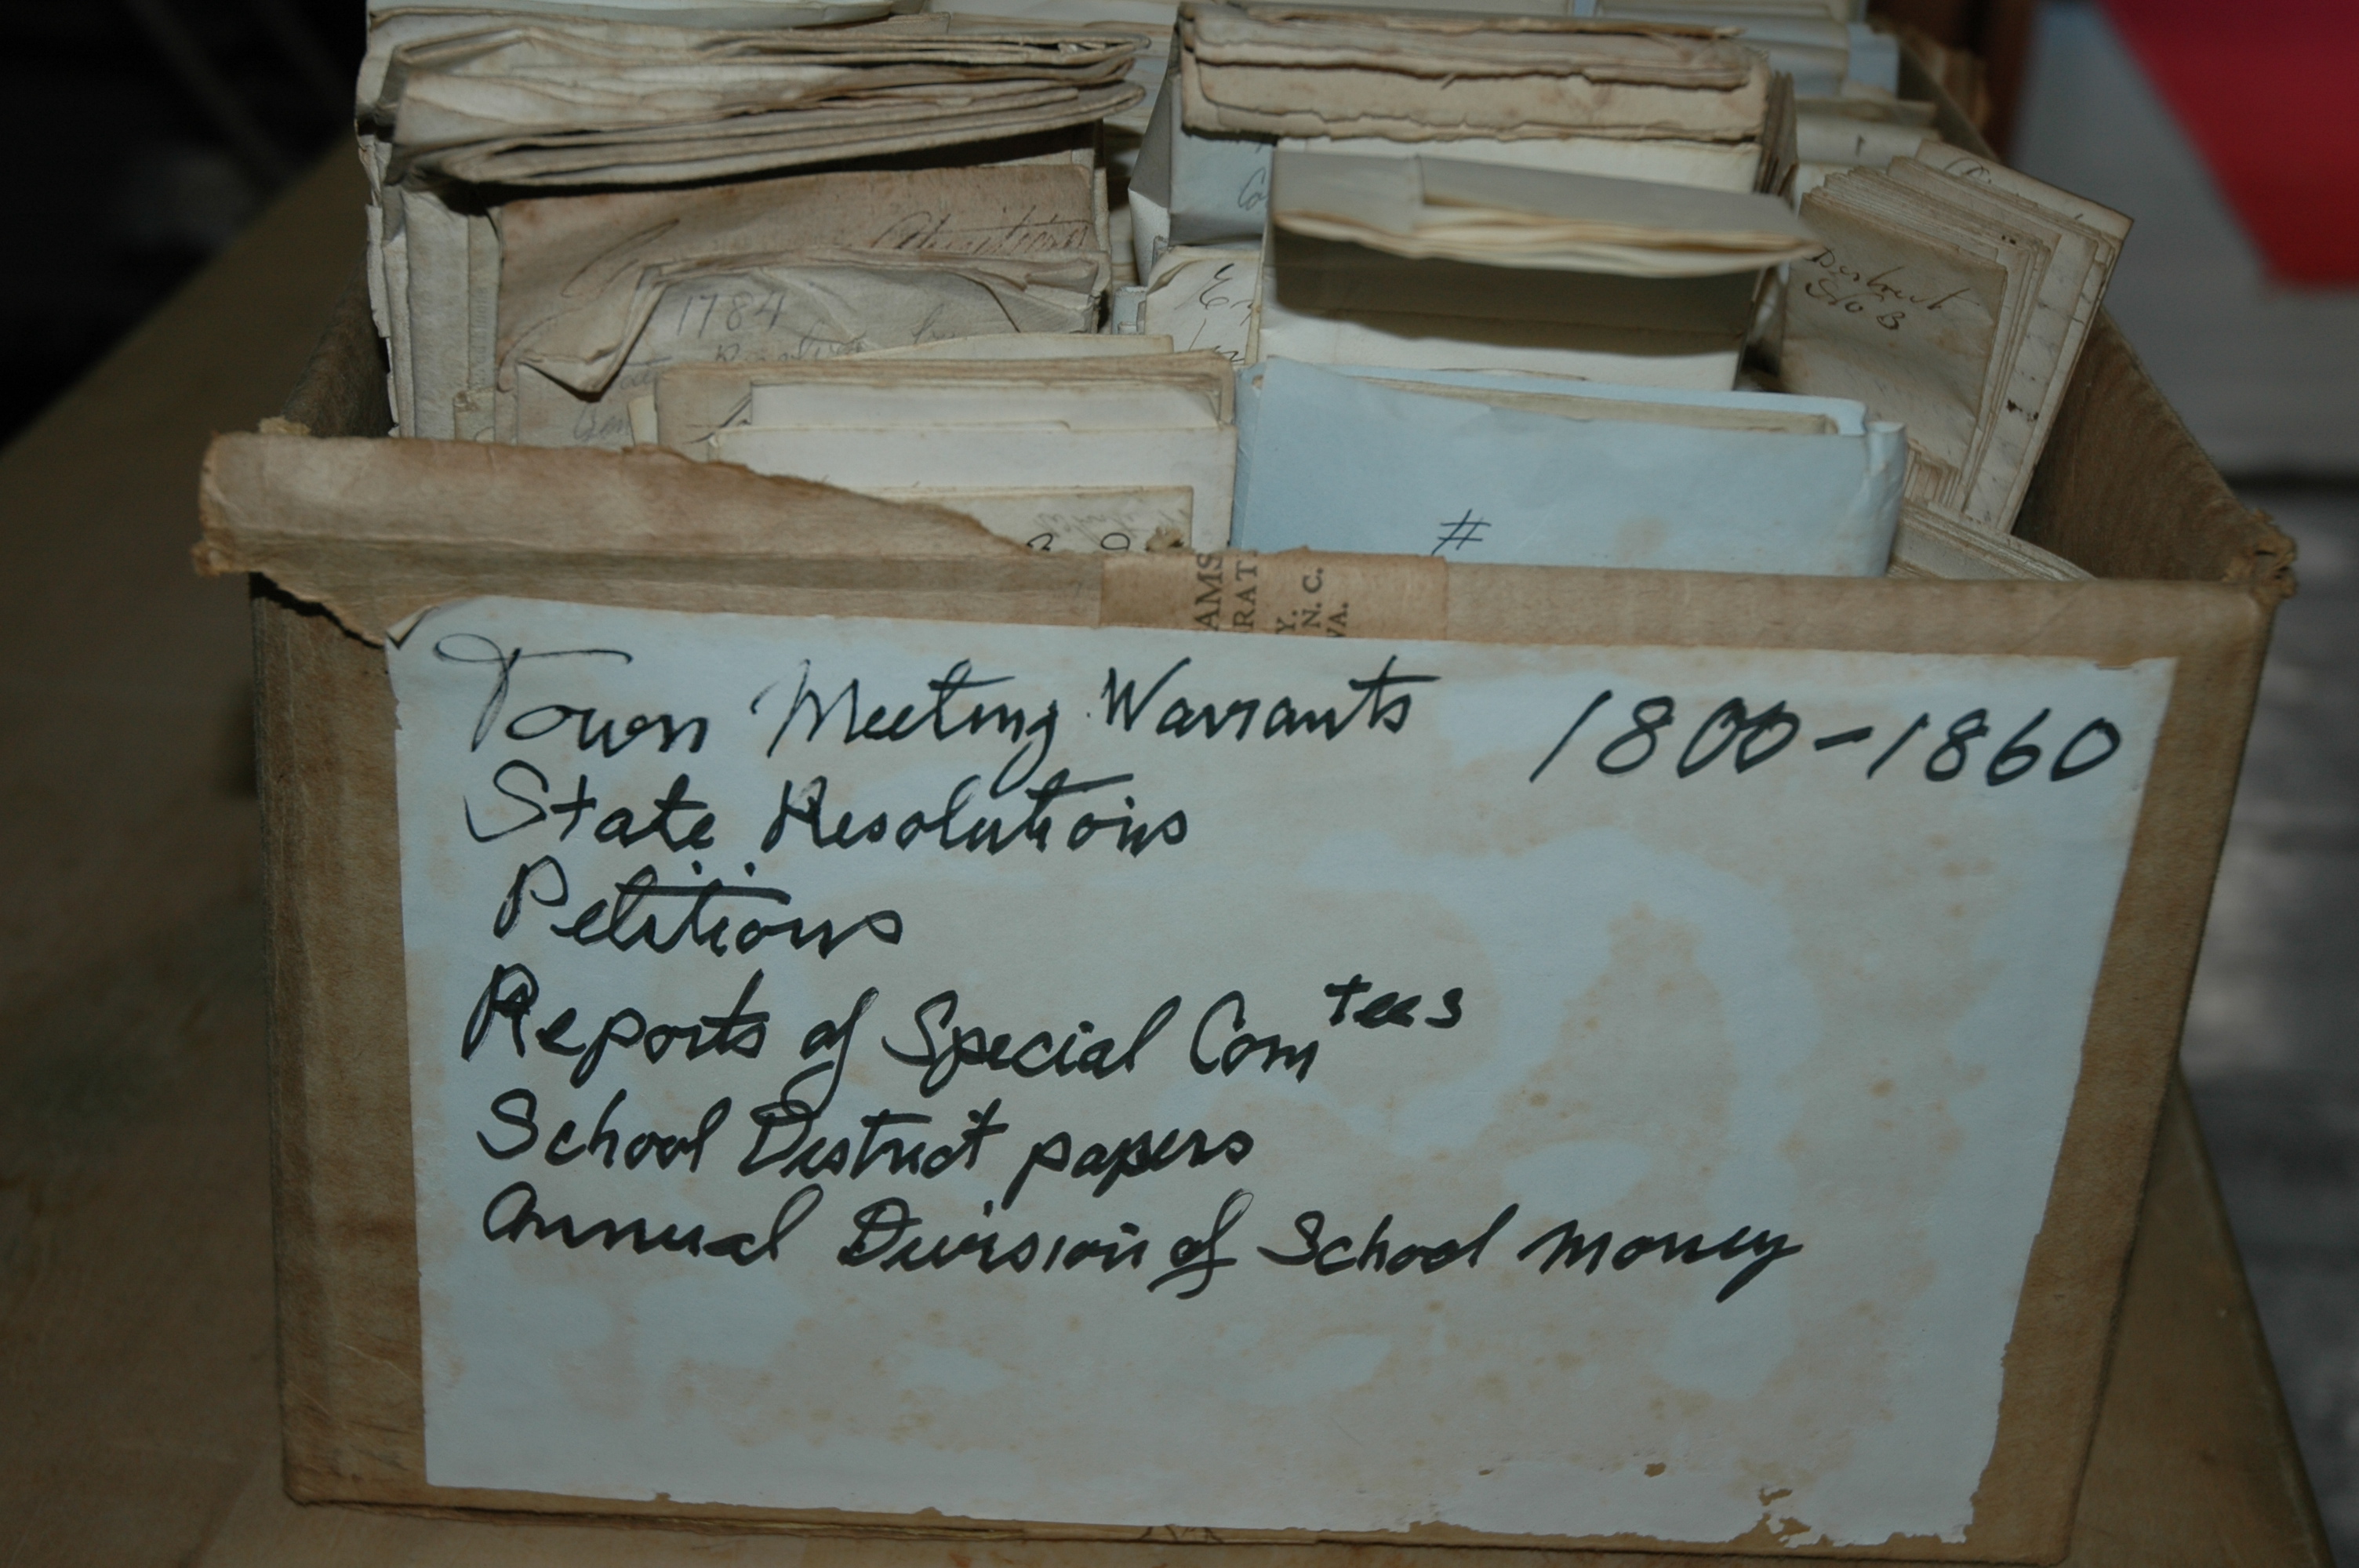 1784
District
No 8
#
AMS
RAT
Y.
N. C.
VA.
Town Meeting Warrants 1800-1860
State Resolutions
Petitions
Reports of Special Comtees
School District papers
Annual Division of School money